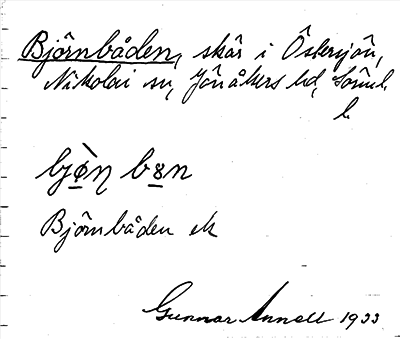 Björnbåden, skär i Östersjön,
Nikolai sn, Jönåkers hd, Sömnl.
l.
bjø̀ɳ bɤn
Björnbåden ek
Gunnar Annell 1933